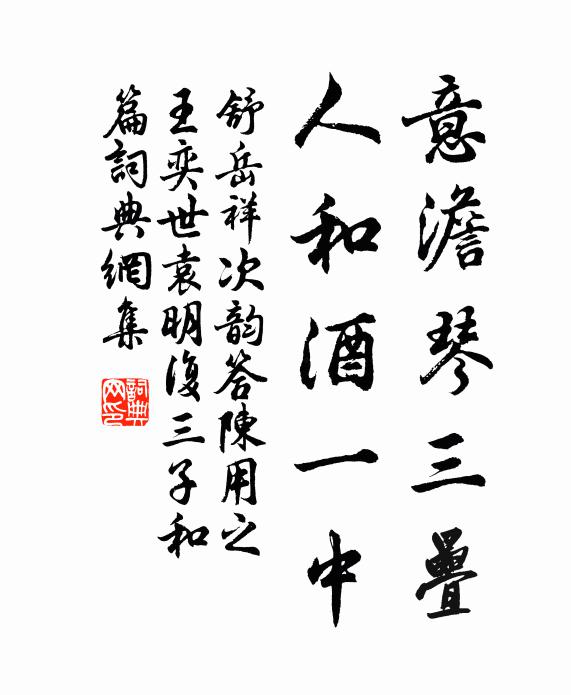 意澹琴三疊
人和酒一中
舒岳祥次韵答陳用之
王奕世袁明復三子和
篇詞典網集
詞典
网印